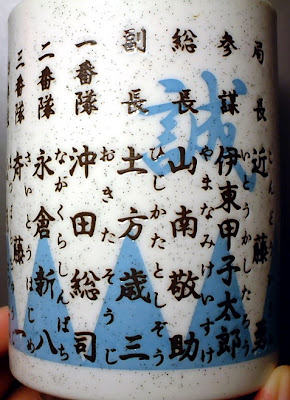 誠
局長 近藤勇
こんどう
参謀 伊東甲子太郎
いとうかしたろう
総長 山南敬助
やまなみけいすけ
副長 土方歳三
ひじかたとしぞう
一番隊 沖田総司
おきたそうじ
二番隊 永倉新八
ながくらしんぱち
三番隊 斉藤一
さいとうはじめ